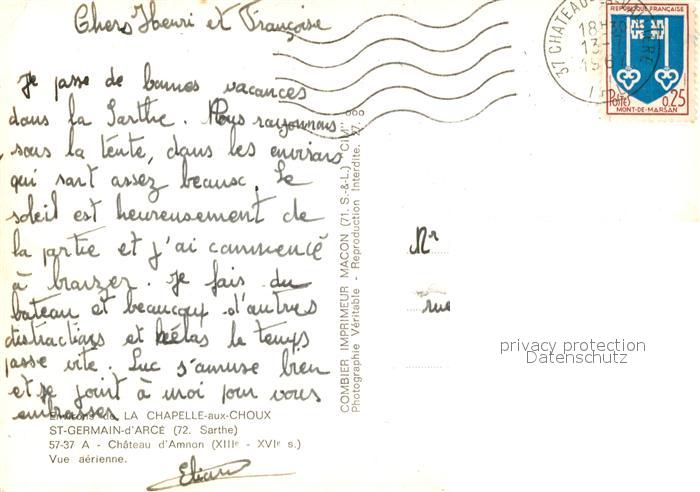 Chers Henri et Françoise
Je passe de bonnes vacances
dans la Sarthe. Nous rayonnons
sous la tente, dans les environs
qui sont assez beaux. Le
soleil est heureusement de
la partie et j'ai commencé
à bronzer. Je fais du
bateau et beaucoup d'autres
distractions et hélas le temps
passe vite. Luc s'amuse bien
et se joint à moi pour vous
embrasser
Environs de LA CHAPELLE-aux-CHOUX
ST-GERMAIN-d'ARCÉ (72. Sarthe)
57-37 A - Château d'Amnon (XIIIe - XVIe s.)
Vue aérienne.
COMBIER IMPRIMEUR MACON (71. S.-&-L.) "CIM"
Photographie Véritable - Reproduction Interdite.
37 CHATEAU
18H30
13-
REPUBLIQUE FRANÇAISE
Postes 0,25
MONT-DE-MARSAN
Mr
rue
privacy protection
Datenschutz